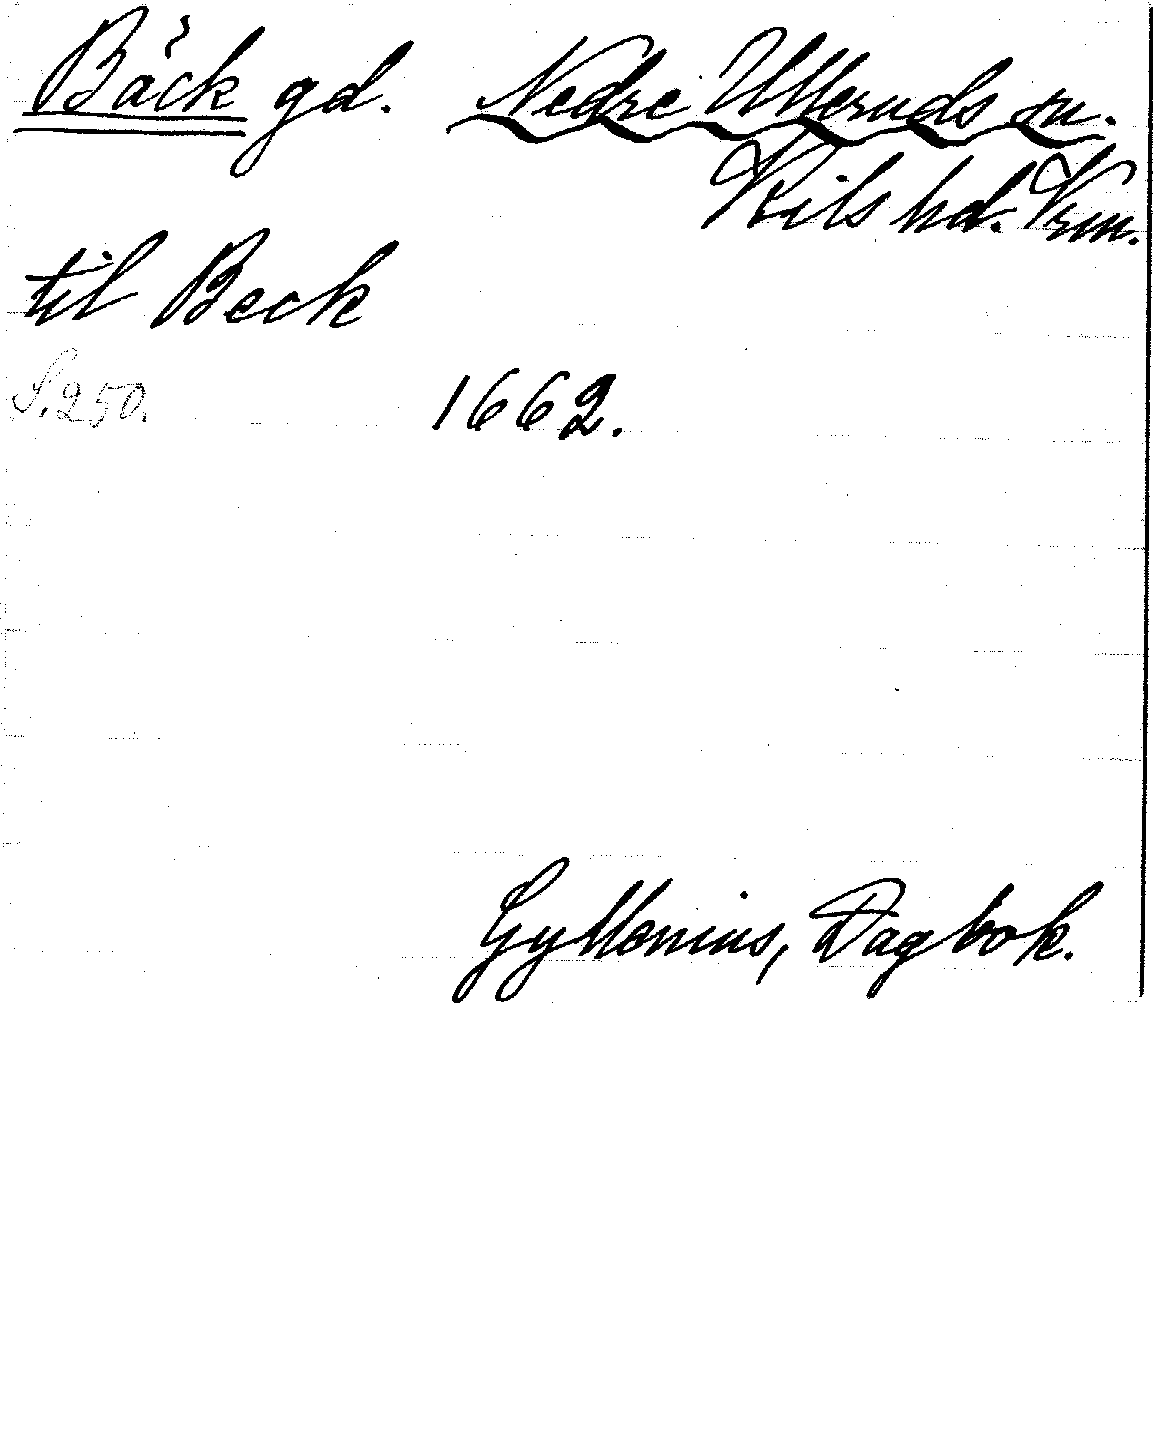 Bäck gd. Nedre Ulleruds sn.
Kils hd. Vrm.
til Beck
S. 250. 1662.
Gyllenius, Dagbok.